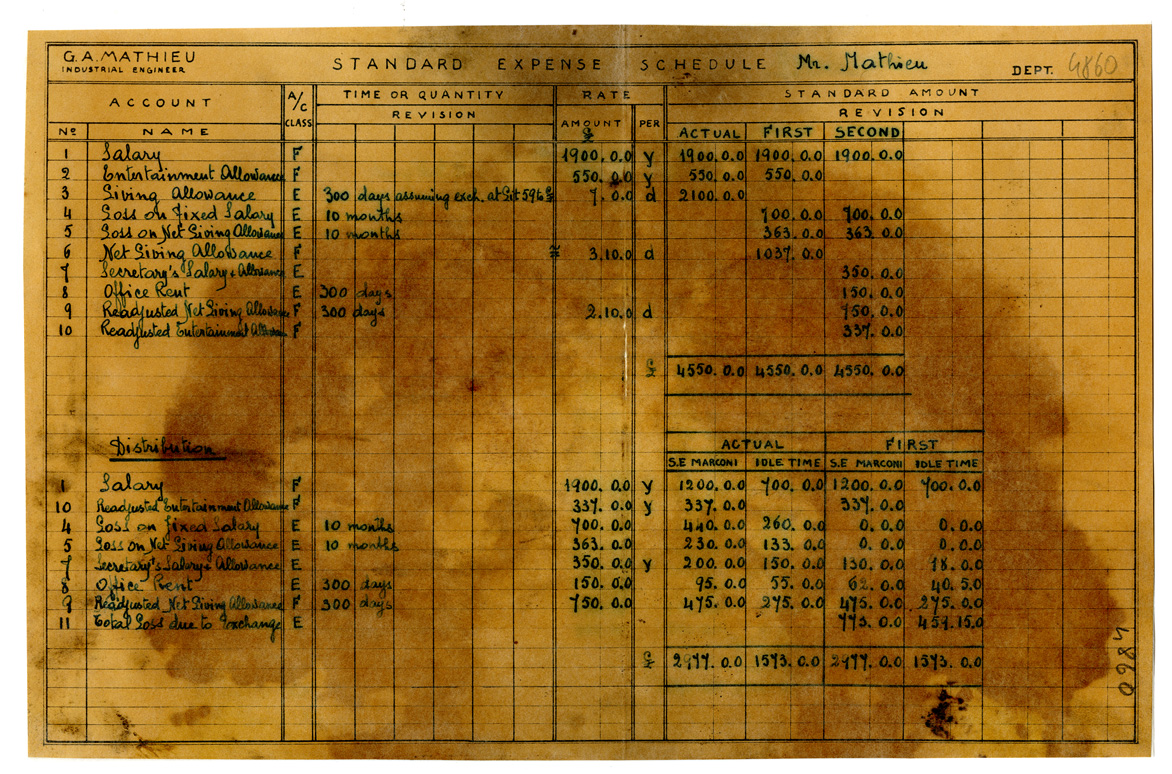 G. A. MATHIEU
INDUSTRIAL ENGINEER
STANDARD EXPENSE SCHEDULE Mr. Mathieu
DEPT. 4860
ACCOUNT A/C CLASS TIME OR QUANTITY RATE STANDARD AMOUNT
REVISION AMOUNT £ PER REVISION
Nº NAME ACTUAL FIRST SECOND
1 Salary F 1900. 0.0 y 1900. 0.0 1900. 0.0 1900. 0.0
2 Entertainment Allowance F 550. 0.0 y 550. 0.0 550. 0.0
3 Living Allowance E 300 days assuming exch. at Lit 596 £ 7. 0.0 d 2100. 0.0
4 Loss on Fixed Salary E 10 months 700. 0.0 700. 0.0
5 Loss on Net Living Allowance E 10 months 363. 0.0 363. 0.0
6 Net Living Allowance F ≈ 3.10.0 d 1037. 0.0
7 Secretary's Salary + Allowance E 350. 0.0
8 Office Rent E 300 days 150. 0.0
9 Readjusted Net Living Allowance F 300 days 2.10.0 d 750. 0.0
10 Readjusted Entertainment Allowance F 337. 0.0
£ 4550. 0.0 4550. 0.0 4550. 0.0
Distribution ACTUAL FIRST
S.E MARCONI IDLE TIME S.E MARCONI IDLE TIME
1 Salary F 1900. 0.0 y 1200. 0.0 700. 0.0 1200. 0.0 700. 0.0
10 Readjusted Entertainment Allowance F 337. 0.0 y 337. 0.0 337. 0.0
4 Loss on Fixed Salary E 10 months 700. 0.0 440. 0.0 260. 0.0 0. 0.0 0. 0.0
5 Loss on Net Living Allowance E 10 months 363. 0.0 230. 0.0 133. 0.0 0. 0.0 0. 0.0
7 Secretary's Salary + Allowance E 350. 0.0 y 200. 0.0 150. 0.0 130. 0.0 18. 0.0
8 Office Rent E 300 days 150. 0.0 95. 0.0 55. 0.0 62. 0.0 40. 5.0
9 Readjusted Net Living Allowance F 300 days 750. 0.0 475. 0.0 275. 0.0 475. 0.0 275. 0.0
11 Total Loss due to Exchange E 773. 0.0 459.15.0
£ 2977. 0.0 1573. 0.0 2977. 0.0 1573. 0.0